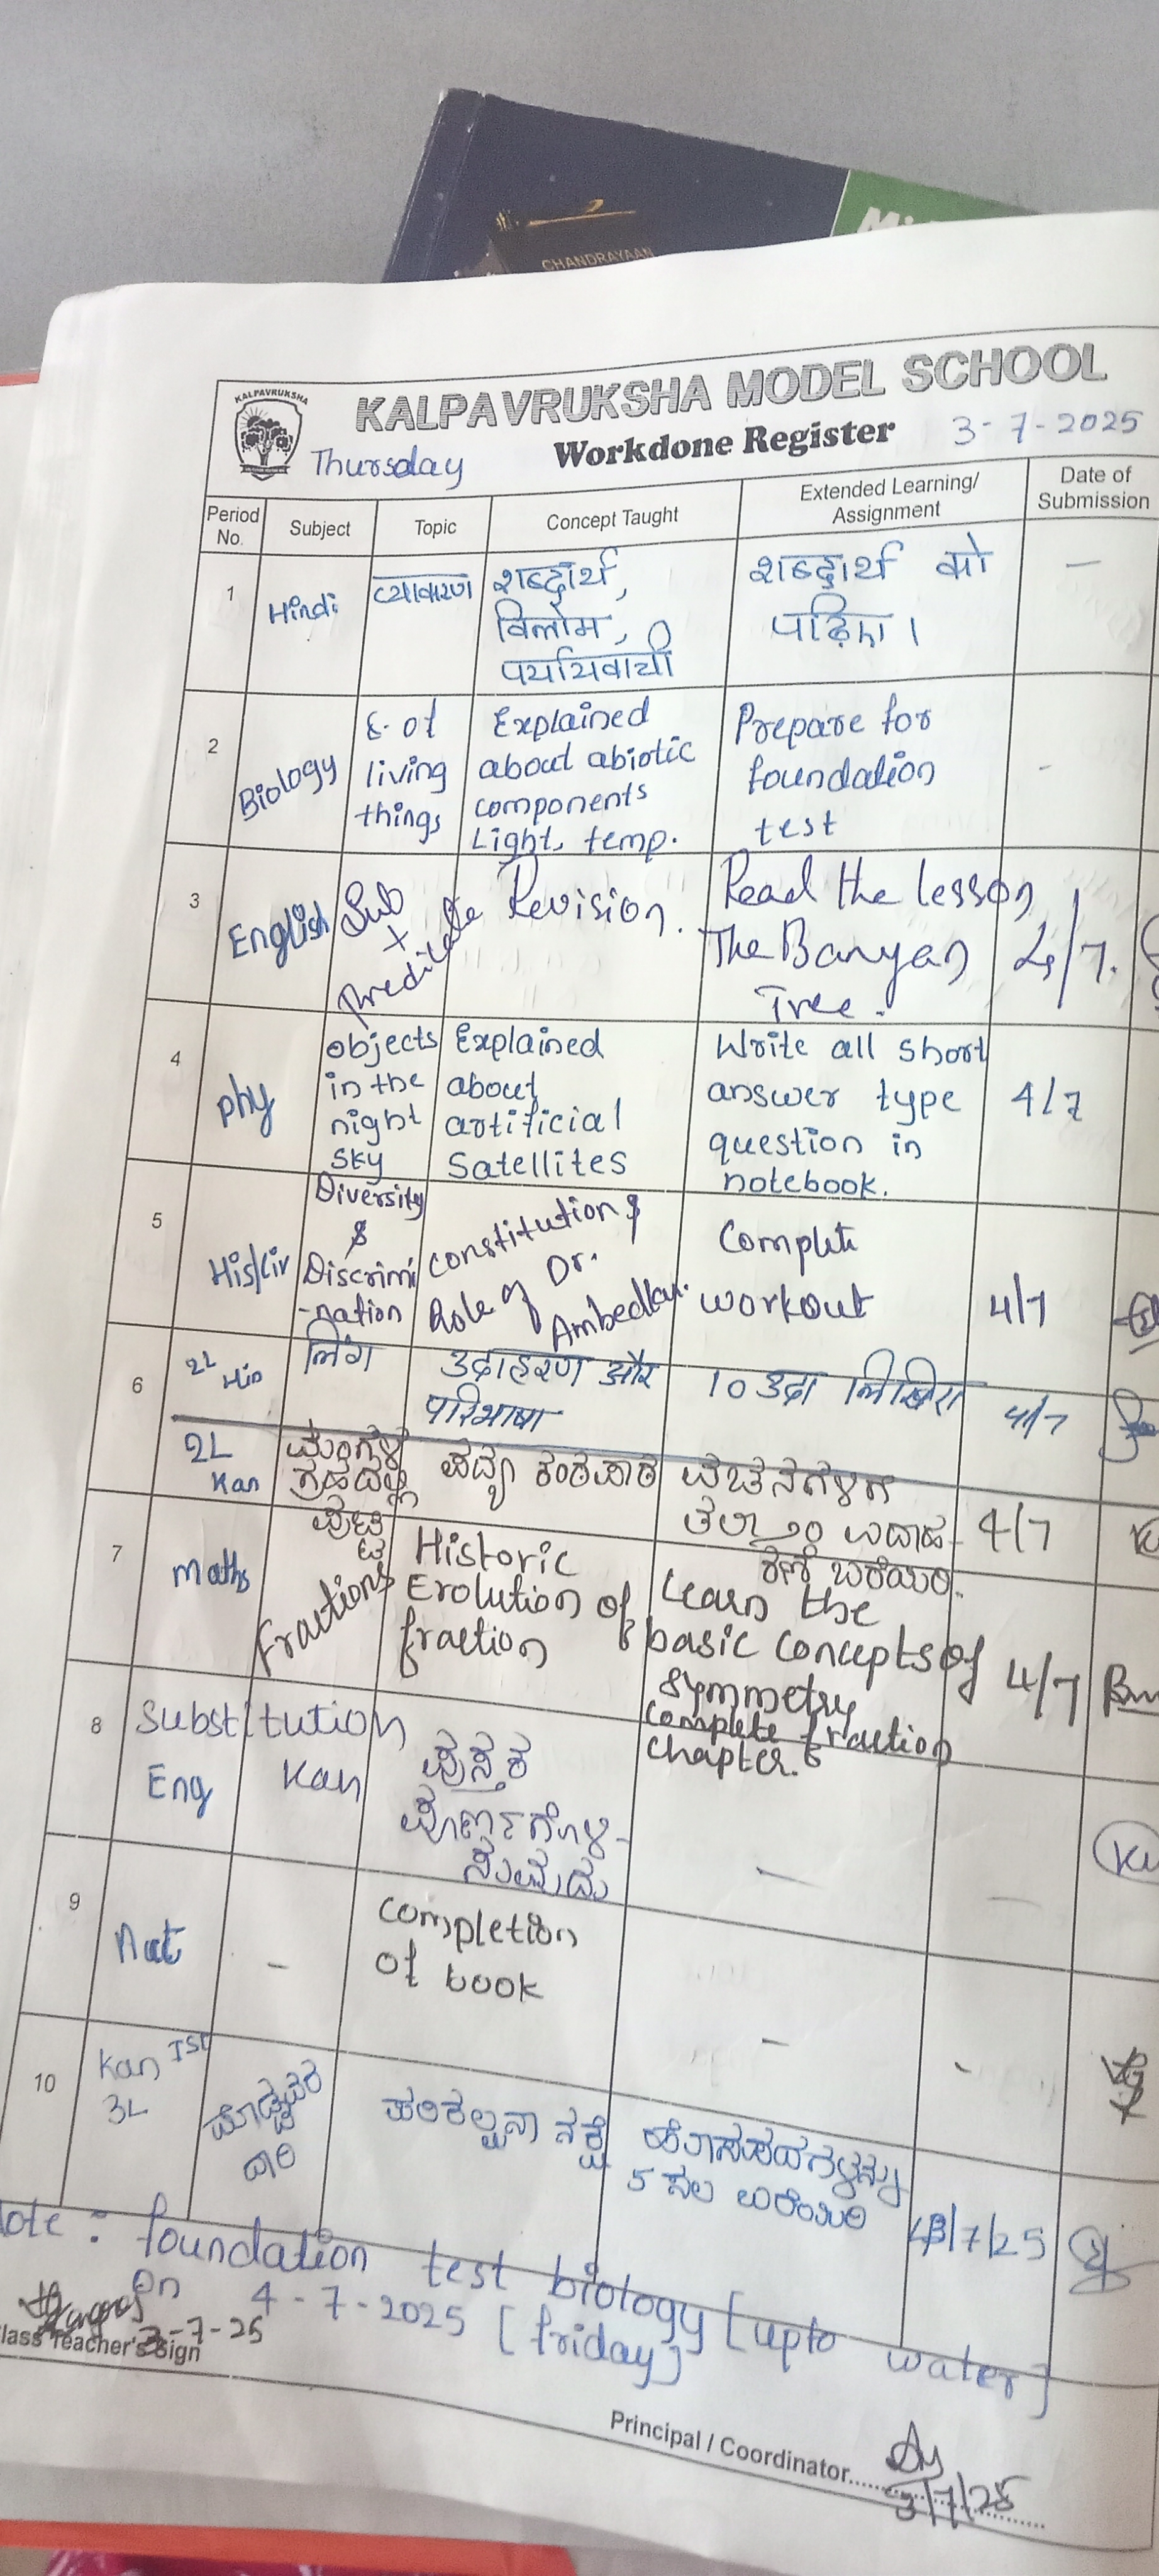 CHANDRAYAAN
KALPAVRUKSHA
KALPAVRUKSHA MODEL SCHOOL
Thursday Workdone Register 3-7-2025
Period No. Subject Topic Concept Taught Extended Learning/ Assignment Date of Submission
1 Hindi व्याकरण शब्दार्थ, शब्दार्थ को —
विलोम, पढ़िए।
पर्यायवाची
2 Biology E. of Explained Prepare for -
living about abiotic foundation
things components test
Light, temp.
3 English Sub + Predicate Revision. Read the lesson
The Banyan 4/7.
Tree.
4 phy objects Explained Write all short
in the about answer type 4/7
night artificial question in
sky Satellites notebook.
5 His/Civ Diversity constitution & Complete
& Role of Dr. workout 4/7
Discrimi Ambedkar.
-nation
6 2L Hin लिंग उदाहरण और 10 उदा लिखिए 4/7
परिभाषा
2L Kan ಮಂಗಳ ಪದ್ಯ ಕಂಠಪಾಠ ವಚನಗಳಿಗೆ
ಗ್ರಹದಲ್ಲಿ ತಲಾ 10 ಉದಾಹ- 4/7
ಪುಟ್ಟಿ ರಣೆ ಬರೆಯಿರಿ.
7 Maths Fractions Historic Learn the
Evolution of basic concepts of 4/7
fraction symmetry
complete fraction
chapter.
8 Substitution
Eng Kan ಪುಸ್ತಕ
ಪೂರ್ಣಗೊಳಿ-
ಸುವುದು — —
9 Art - completion - -
of book
10 Kan IST
3L ಪರಿಕಲ್ಪನಾ ನಕ್ಷೆ ಹೊಸಪದಗಳನ್ನು
5 ಸಲ ಬರೆಯಿರಿ /7/25
Note: foundation test biology [upto water]
On 4-7-2025 [friday]
3-7-25
Class Teacher's Sign
Principal / Coordinator
3/7/25